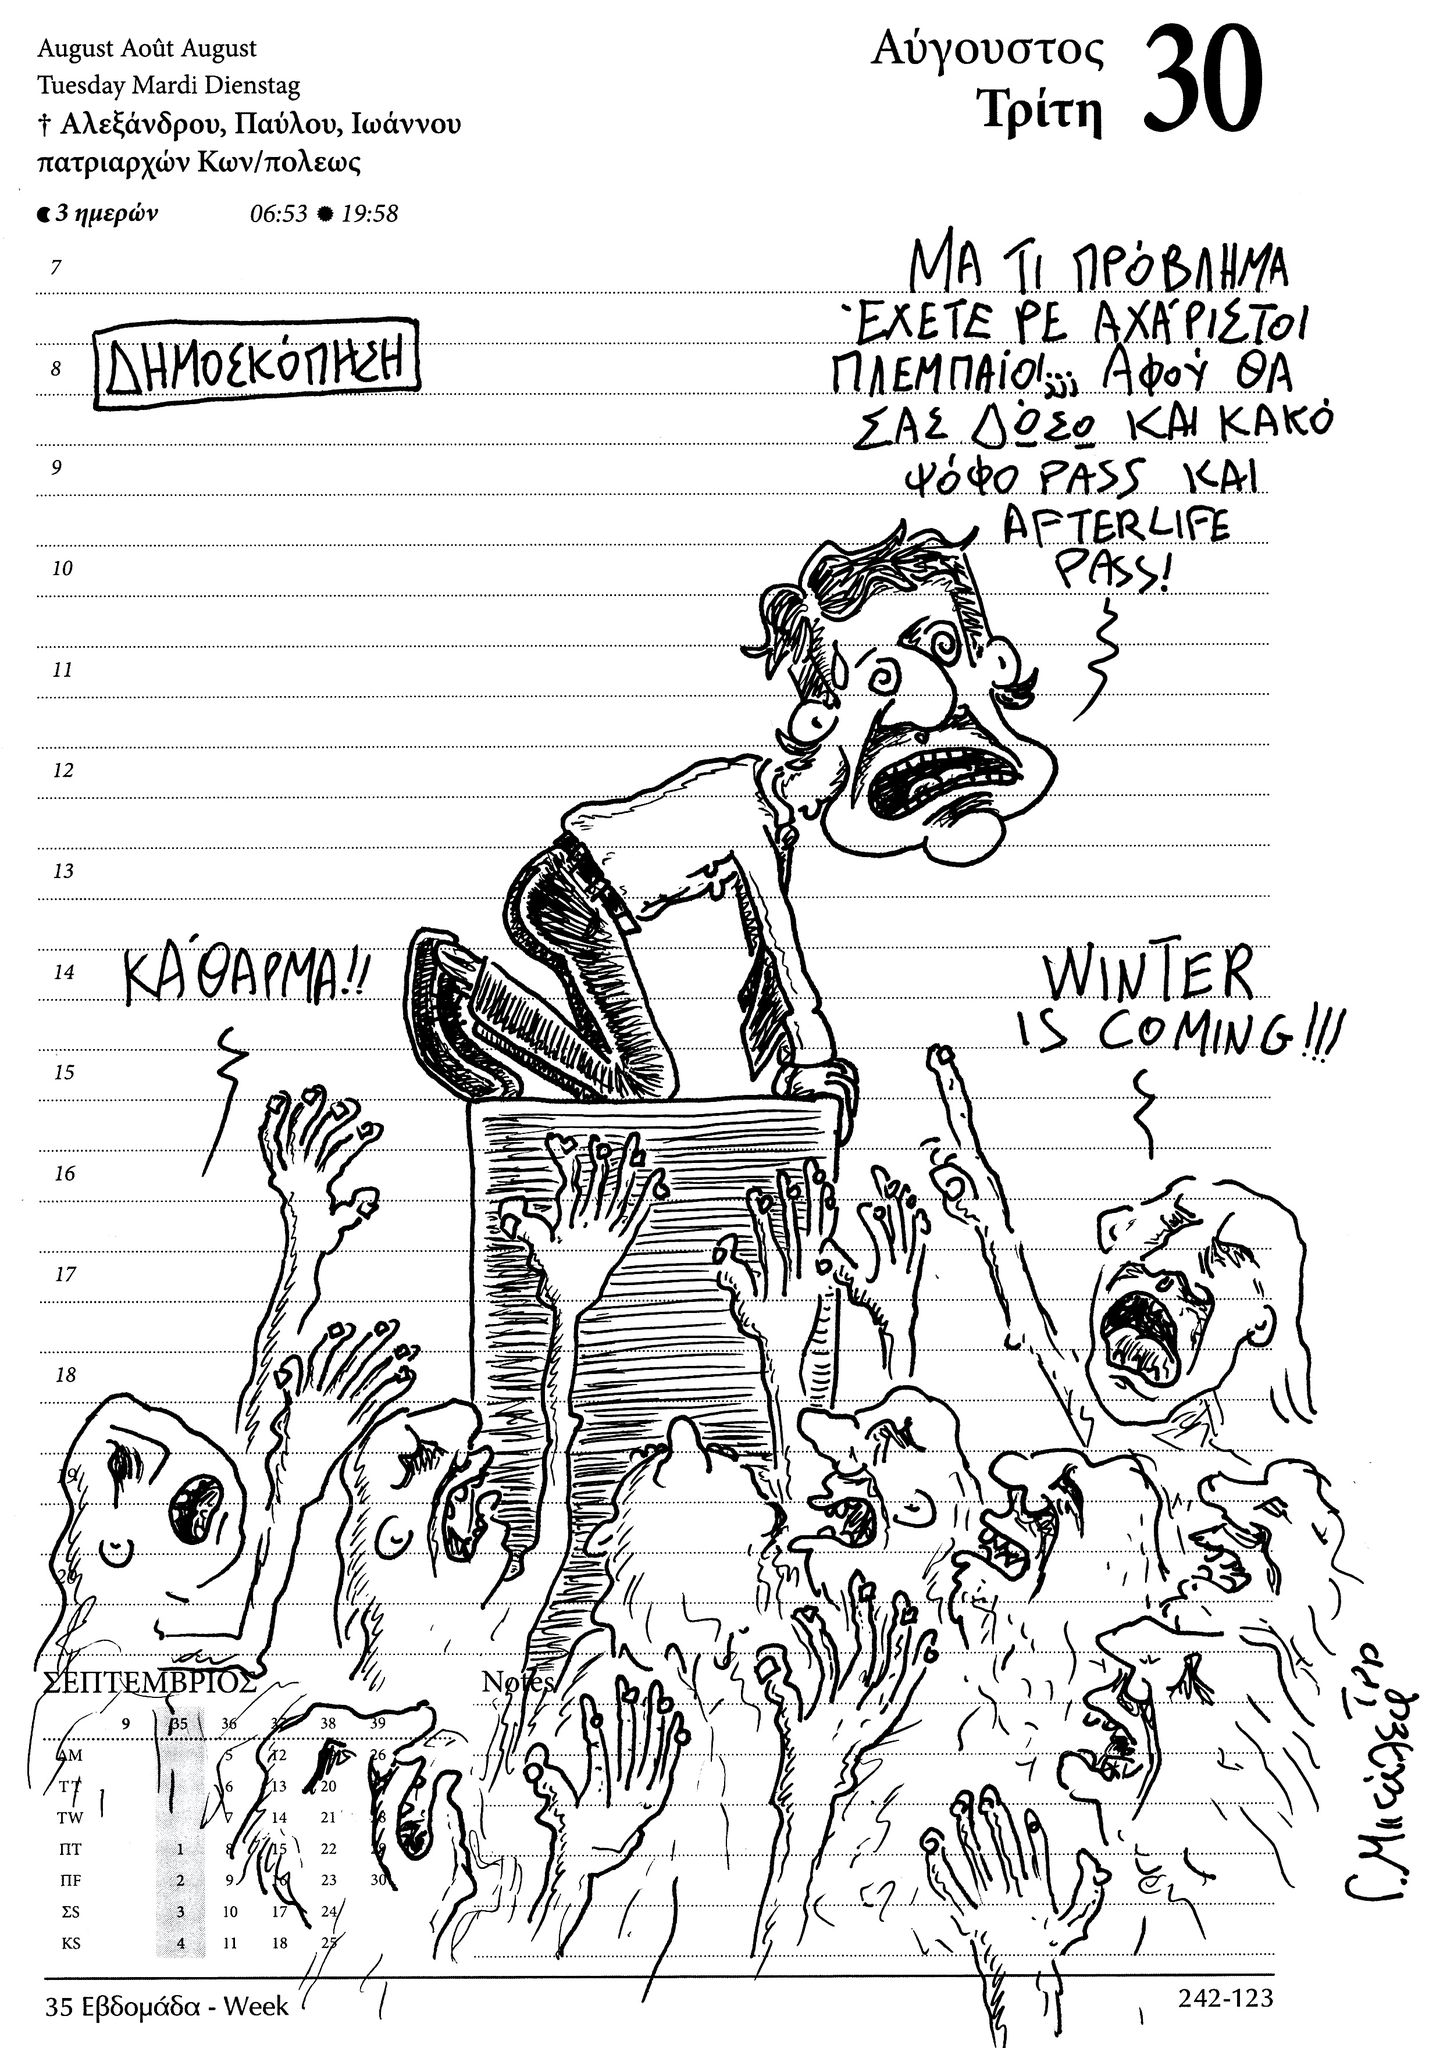 August Août August
Tuesday Mardi Dienstag
† Αλεξάνδρου, Παύλου, Ιωάννου
πατριαρχών Κων/πολεως
3 ημερών 06:53 19:58
Αύγουστος
Τρίτη
30
7
8
9
10
11
12
13
14
15
16
17
18
19
20
ΔΗΜΟΣΚΟΠΗΣΗ
ΜΑ ΤΙ ΠΡΟΒΛΗΜΑ
ΈΧΕΤΕ ΡΕ ΑΧΆΡΙΣΤΟΙ
ΠΛΕΜΠΑΙΟΙ;;; ΑΦΟΎ ΘΑ
ΣΑΣ ΔΏΣΩ ΚΑΙ ΚΑΚΌ
ΨΌΦΟ PASS ΚΑΙ
AFTERLIFE
PASS!
ΚΆΘΑΡΜΑ!!
WINTER
IS COMING!!!
ΣΕΠΤΕΜΒΡΙΟΣ
9 35 36 37 38 39
ΔM 5 12 26
ΤT 6 13 20
ΤW 7 14 21 28
ΠT 1 8 15 22 29
ΠF 2 9 16 23 30
ΣS 3 10 17 24
ΚS 4 11 18 25
Notes
35 Εβδομάδα - Week
242-123